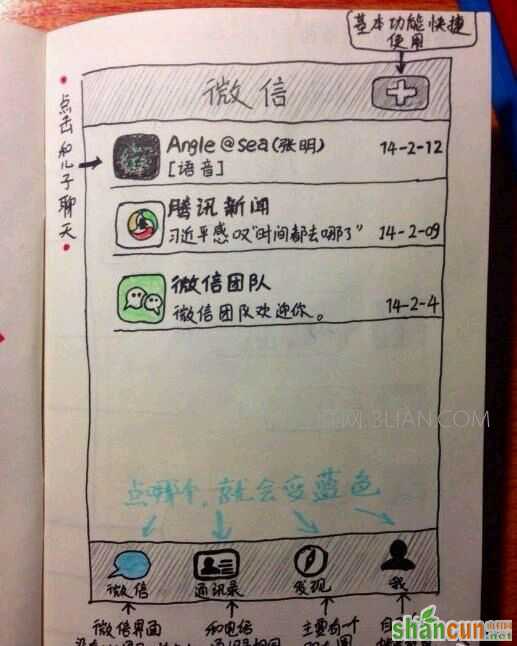 基本功能快捷
使用
微信
点击和儿子聊天
Angle@sea(张明) 14-2-12
[语音]
腾讯新闻
习近平感叹"时间都去哪了" 14-2-09
微信团队
微信团队欢迎你。 14-2-4
3LIAN.COM
点哪个,就会变蓝色
微信 通讯录 发现 我
微信界面 和电信 主要有一个
shancun